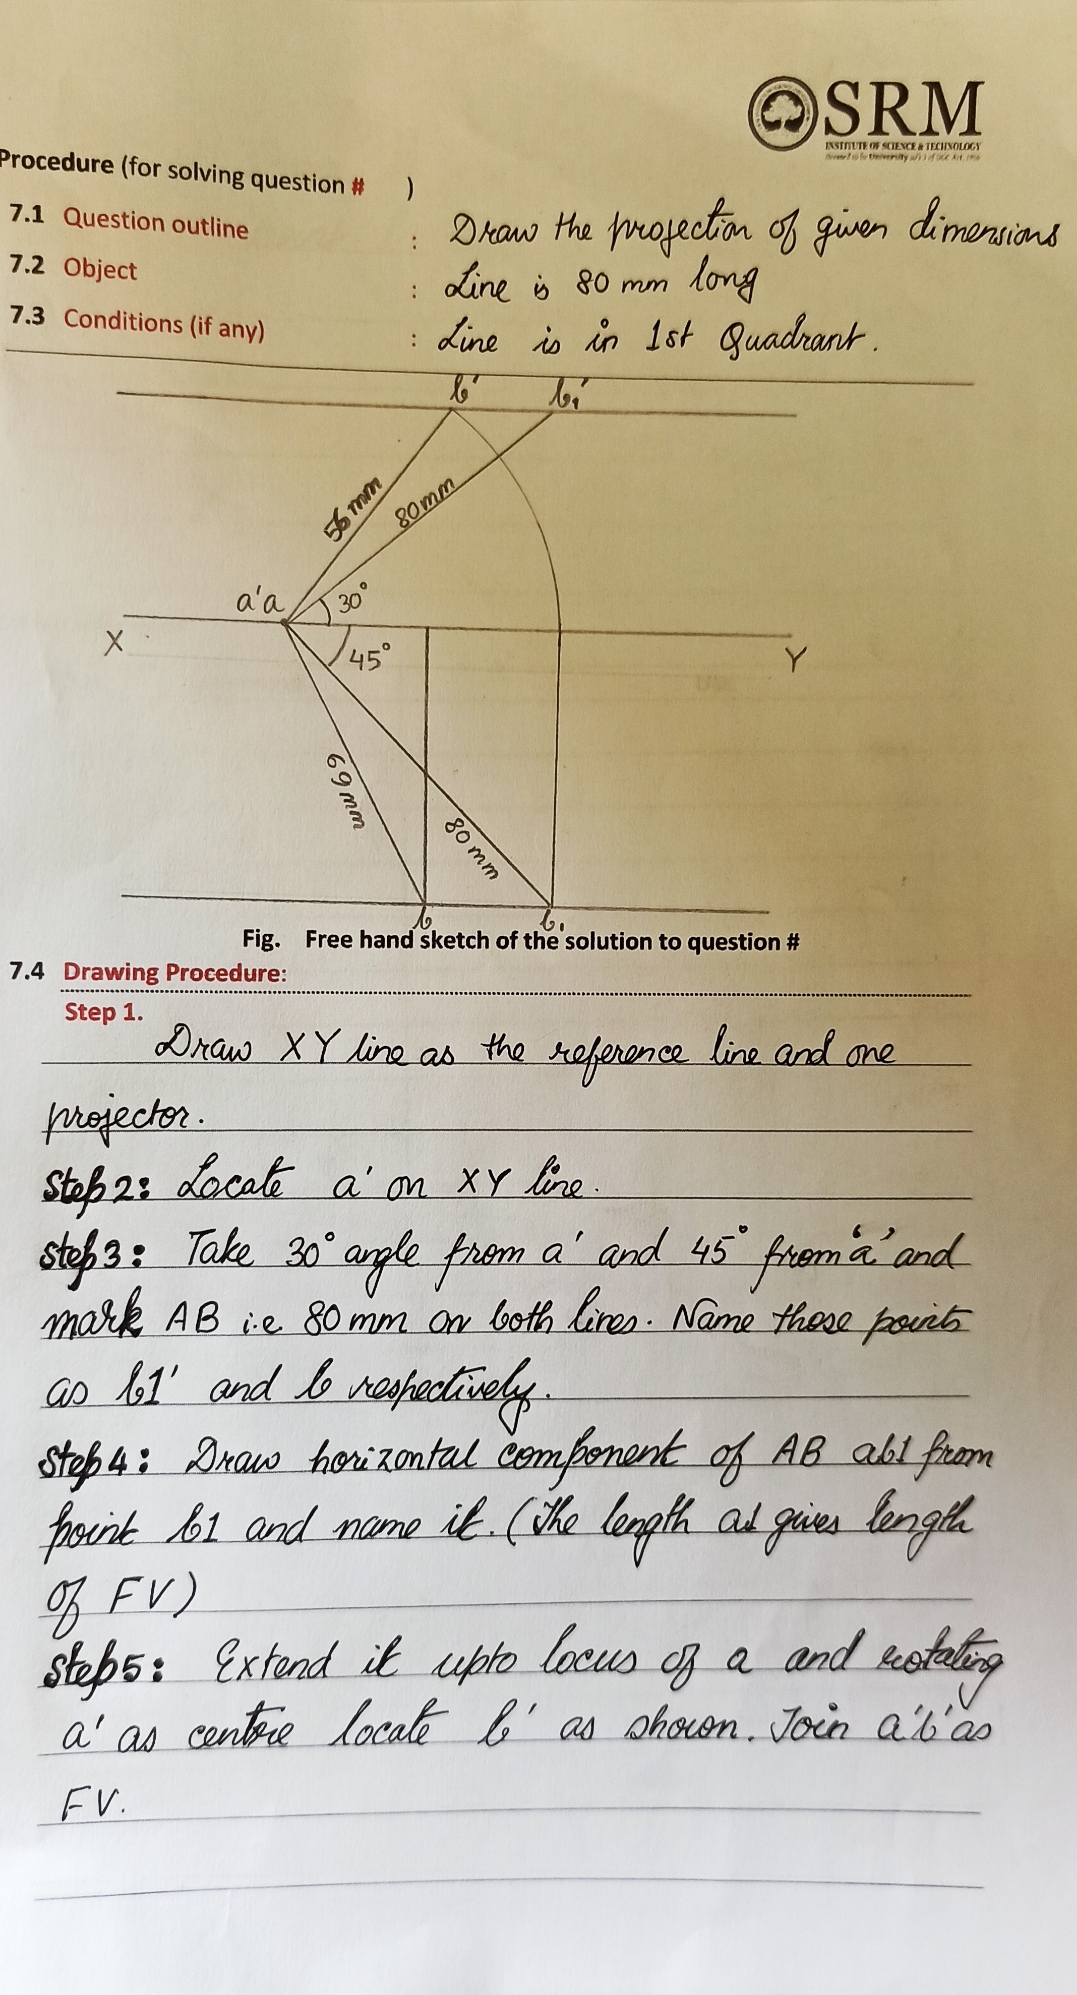 SRM
INSTITUTE OF SCIENCE & TECHNOLOGY
Deemed to be University u/s 3 of UGC Act, 1956
Procedure (for solving question # )
7.1 Question outline : Draw the projection of given dimensions
7.2 Object : Line is 80 mm long
7.3 Conditions (if any) : Line is in 1st Quadrant.
b' b₁'
56 mm 80 mm
a'a 30°
X Y
45°
69 mm
80 mm
b b₁
Fig. Free hand sketch of the solution to question #
7.4 Drawing Procedure:
Step 1.
Draw XY line as the reference line and one
projector.
Step 2: Locate a' on XY line.
Step 3: Take 30° angle from a' and 45° from 'a' and
mark AB i.e 80 mm on both lines. Name those points
as b1' and b respectively.
Step 4: Draw horizontal component of AB ab1 from
point b1 and name it. (The length a1 gives length
of FV)
Step 5: Extend it upto locus of a and rotating
a' as centre locate b' as shown. Join a'b' as
FV.